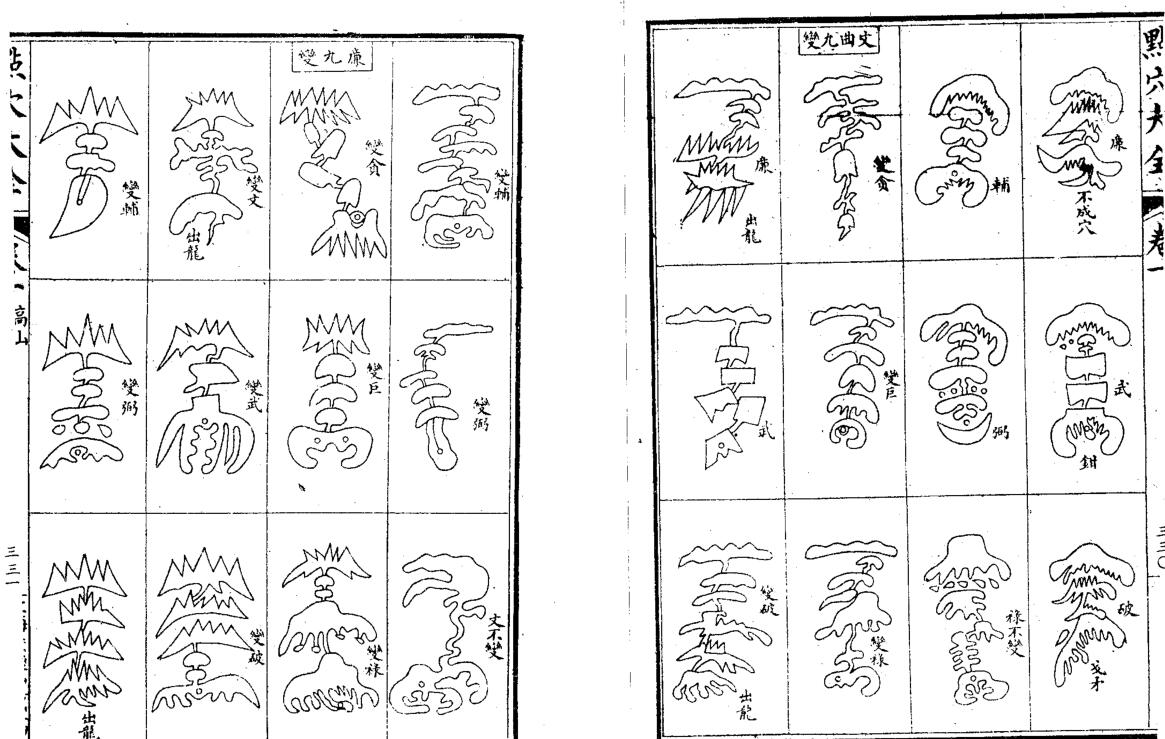 點穴大全
卷一
三三〇
廉
不成穴
武
鉗
破
戈矛
輔
弼
祿不變
文曲九變
變貪
變巨
變祿
廉
出龍
武
變破
出龍
變輔
變弼
文不變
廉九變
變貪
變巨
變祿
變文
出龍
變武
變破
變輔
變弼
出龍
高山
三三一